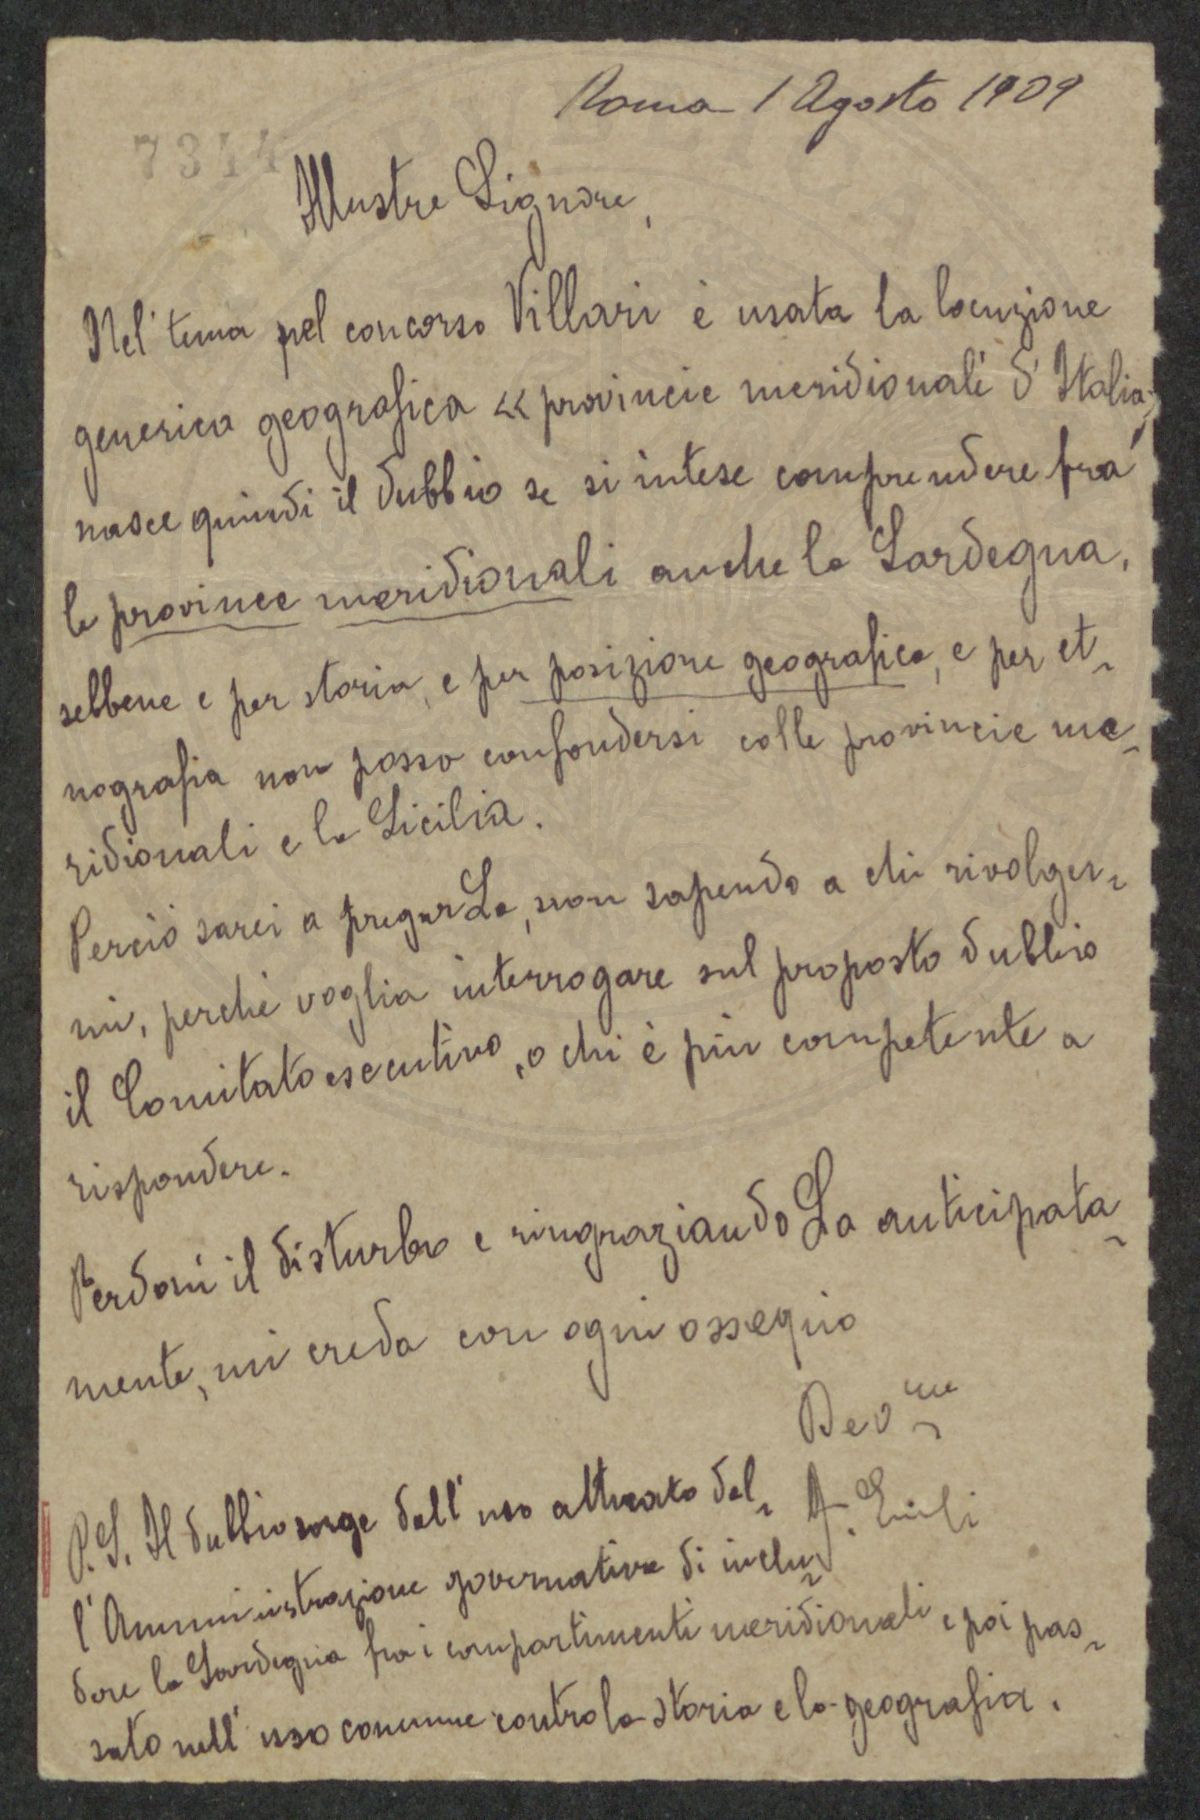 Roma 1 Agosto 1909
7314
Illustre Signore,
Nel tema pel concorso Villari è usata la locuzione
generica geografica « provincie meridionali d'Italia;
nasce quindi il dubbio se si intese comprendere fra
le provincee meridionali anche la Sardegna,
sebbene e per storia, e per posizione geografica, e per et-
nografia non possa confondersi colle provincie me-
ridionali e la Sicilia.
Perciò sarei a pregarLa, non sapendo a chi rivolger-
mi, perchè voglia interrogare sul proposto dubbio
il Comitato esecutivo, o chi è più competente a
rispondere.
Perdoni il disturbo e ringraziandoLa anticipata-
mente, mi creda con ogni ossequio
Devme
P.S. Il dubbio sorge dall'uso del-
l'Amministrazione governativa di inclu-
dere la Sardegna fra i compartimenti meridionali e poi pas-
sato nell'uso comune contro la storia e la geografia.